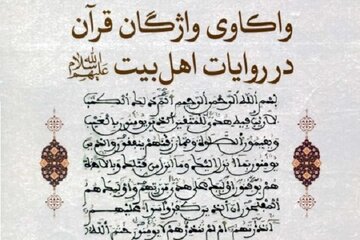 واکاوی واژگان قرآن
در روایات اهل بیت علیهم السلام
بسم الله الرحمن الرحيم الم ذلك الكتب
لا ريب فيه هدى للمتقين الذين يؤمنون بالغيب
ويقيمون الصلوة ومما رزقنهم ينفقون والذين
يؤمنون بما انزل اليك وما انزل من قبلك وبالاخرة
هم يوقنون اولئك على هدى من ربهم واولئك هم
المفلحون ان الذين كفروا سواء عليهم
انذرتهم ام لم تنذرهم لا يؤمنون ختم الله